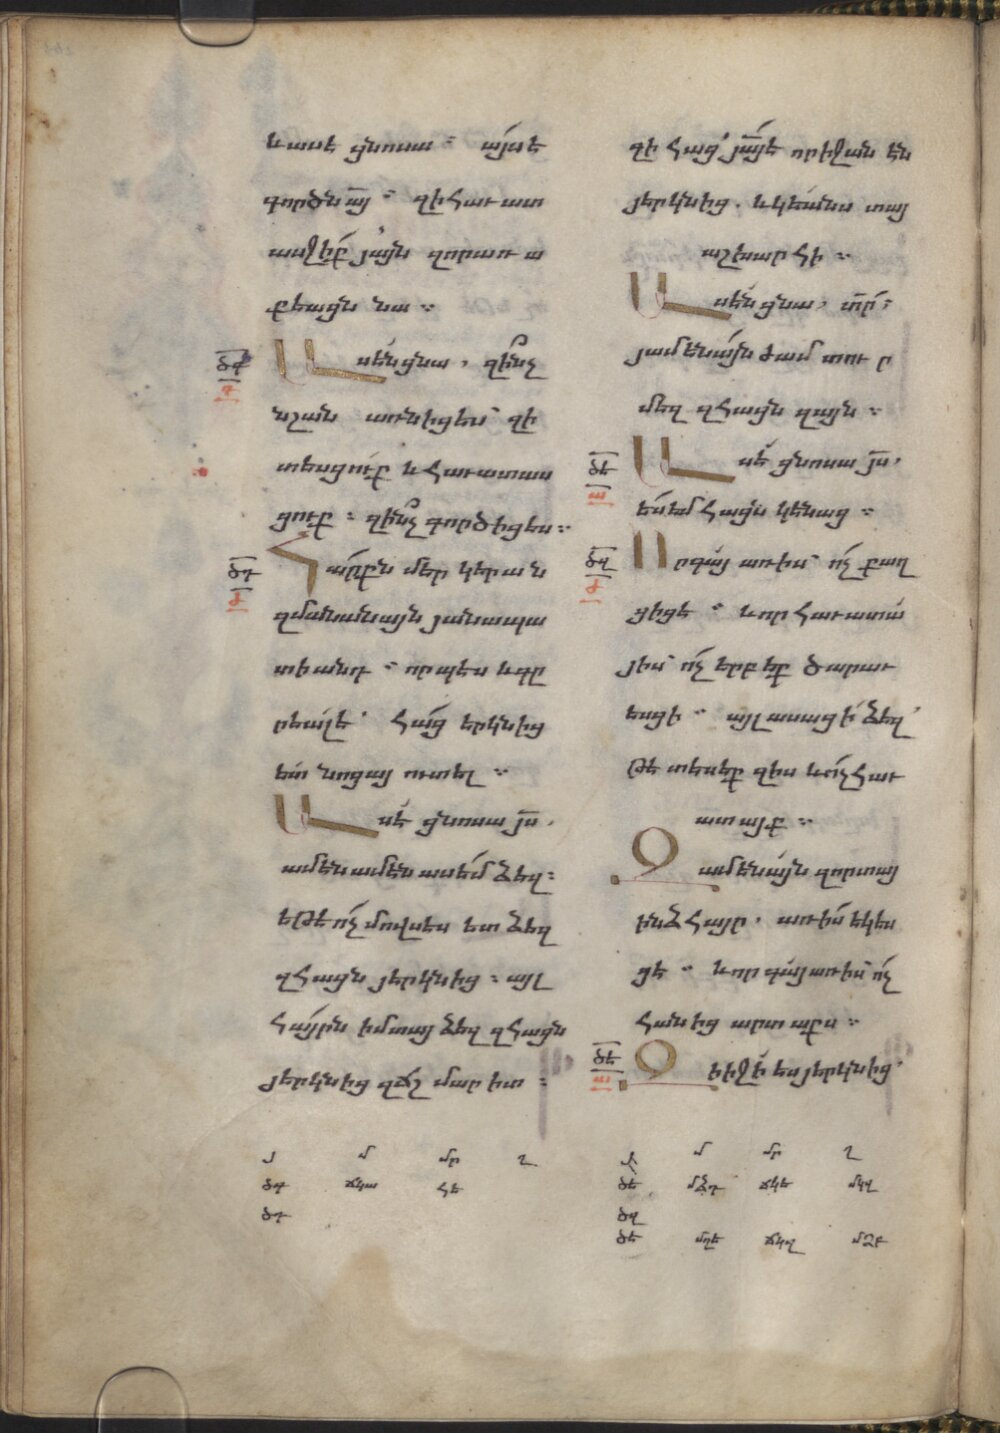 և ասէ ցնոսա ՟ այս է
գործն ա՟յ ՟ զի հաւատ
ասջիք յայն զոր առ ա
քեացն նա ։
ԾԳ
Գ
Ասեն ցնա , զինչ
նշան առնիցես՝ զի
տեսցուք և հաւատաս
ցուք ։ զինչ գործիցես ։
ԾԴ
Ժ
Հարքն մեր կերան
զմանանայն յանապա
տի անդ ՟ որպէս և գը
րեալ է ՝ հաց երկնից
ետ նոցա ուտել ։
Ասէ ցնոսա յ՟ս .
ամէն ամէն ասեմ ձեզ ։
եթէ ոչ մովսէս ետ ձեզ
զհացն յերկնից ։ այլ
հայրն իմ տայ ձեզ զհացն
յերկնից զճշմարիտ ։
զի հաց ա՟յ է որ իջանէն
յերկնից . և կեանս տայ
աշխարհի ։
Ասեն ցնա , տ՟ր ։
յամենայն ժամ տու ր
մեզ զհացն զայն ։
ԾԵ
Ա
Ասէ ցնոսա յ՟ս ,
ես եմ հացն կենաց ։
ԾԶ
Ժ
Որ գայ առ իս՝ ոչ քաղ
ցիցէ ՟ և որ հաւատա
յիս՝ ոչ երբեք ծարաւ
եսցի ՟ այլ ասացի ձեզ ՝
թէ տեսէք զիս և ոչ հաւ
ատայք ։
Զամենայն զոր տայ
ինձ հայր , առ իս եկես
ցէ ՟ և որ գայ առ իս՝ ոչ
հանից արտաքս ։
ԾԷ
Զի իջի ես յերկնից ՝
յ մ մր ղ
ծգ ճկա հե
ծդ
յ մ մր ղ
ծե մձդ ճկե մկզ
ծզ
ծէ